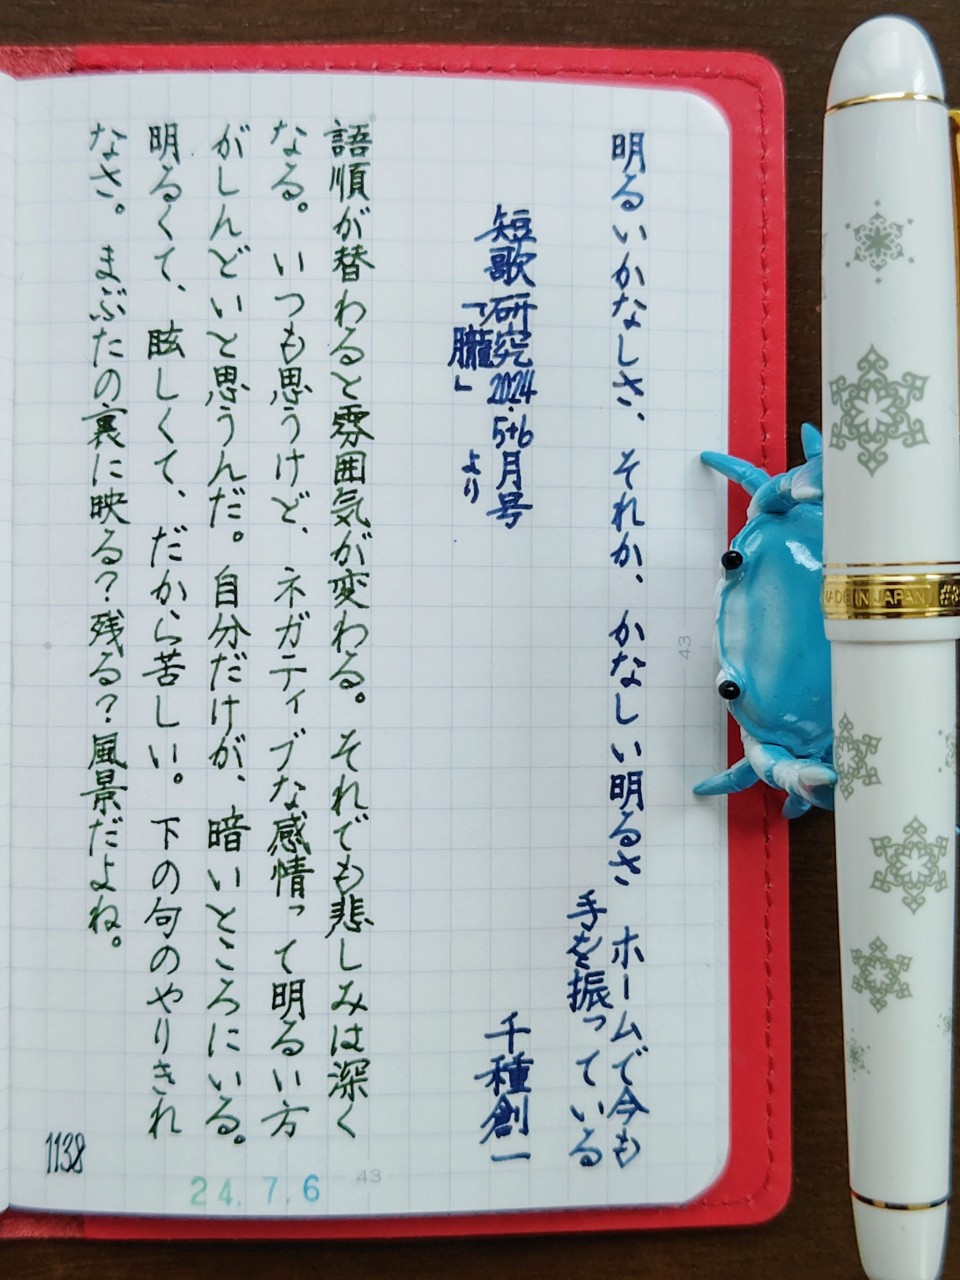 明るいかなしさ、それか、かなしい明るさ ホームで今も
手を振っている
短歌研究2024.5+6月号
「朧」より
千種創一
語順が替わると雰囲気が変わる。それでも悲しみは深く
なる。いつも思うけど、ネガティブな感情って明るい方
がしんどいと思うんだ。自分だけが、暗いところにいる。
明るくて、眩しくて、だから苦しい。下の句のやりきれ
なさ。まぶたの裏に映る？残る？風景だよね。
1138
24.7.6
43
43
MADE IN JAPAN